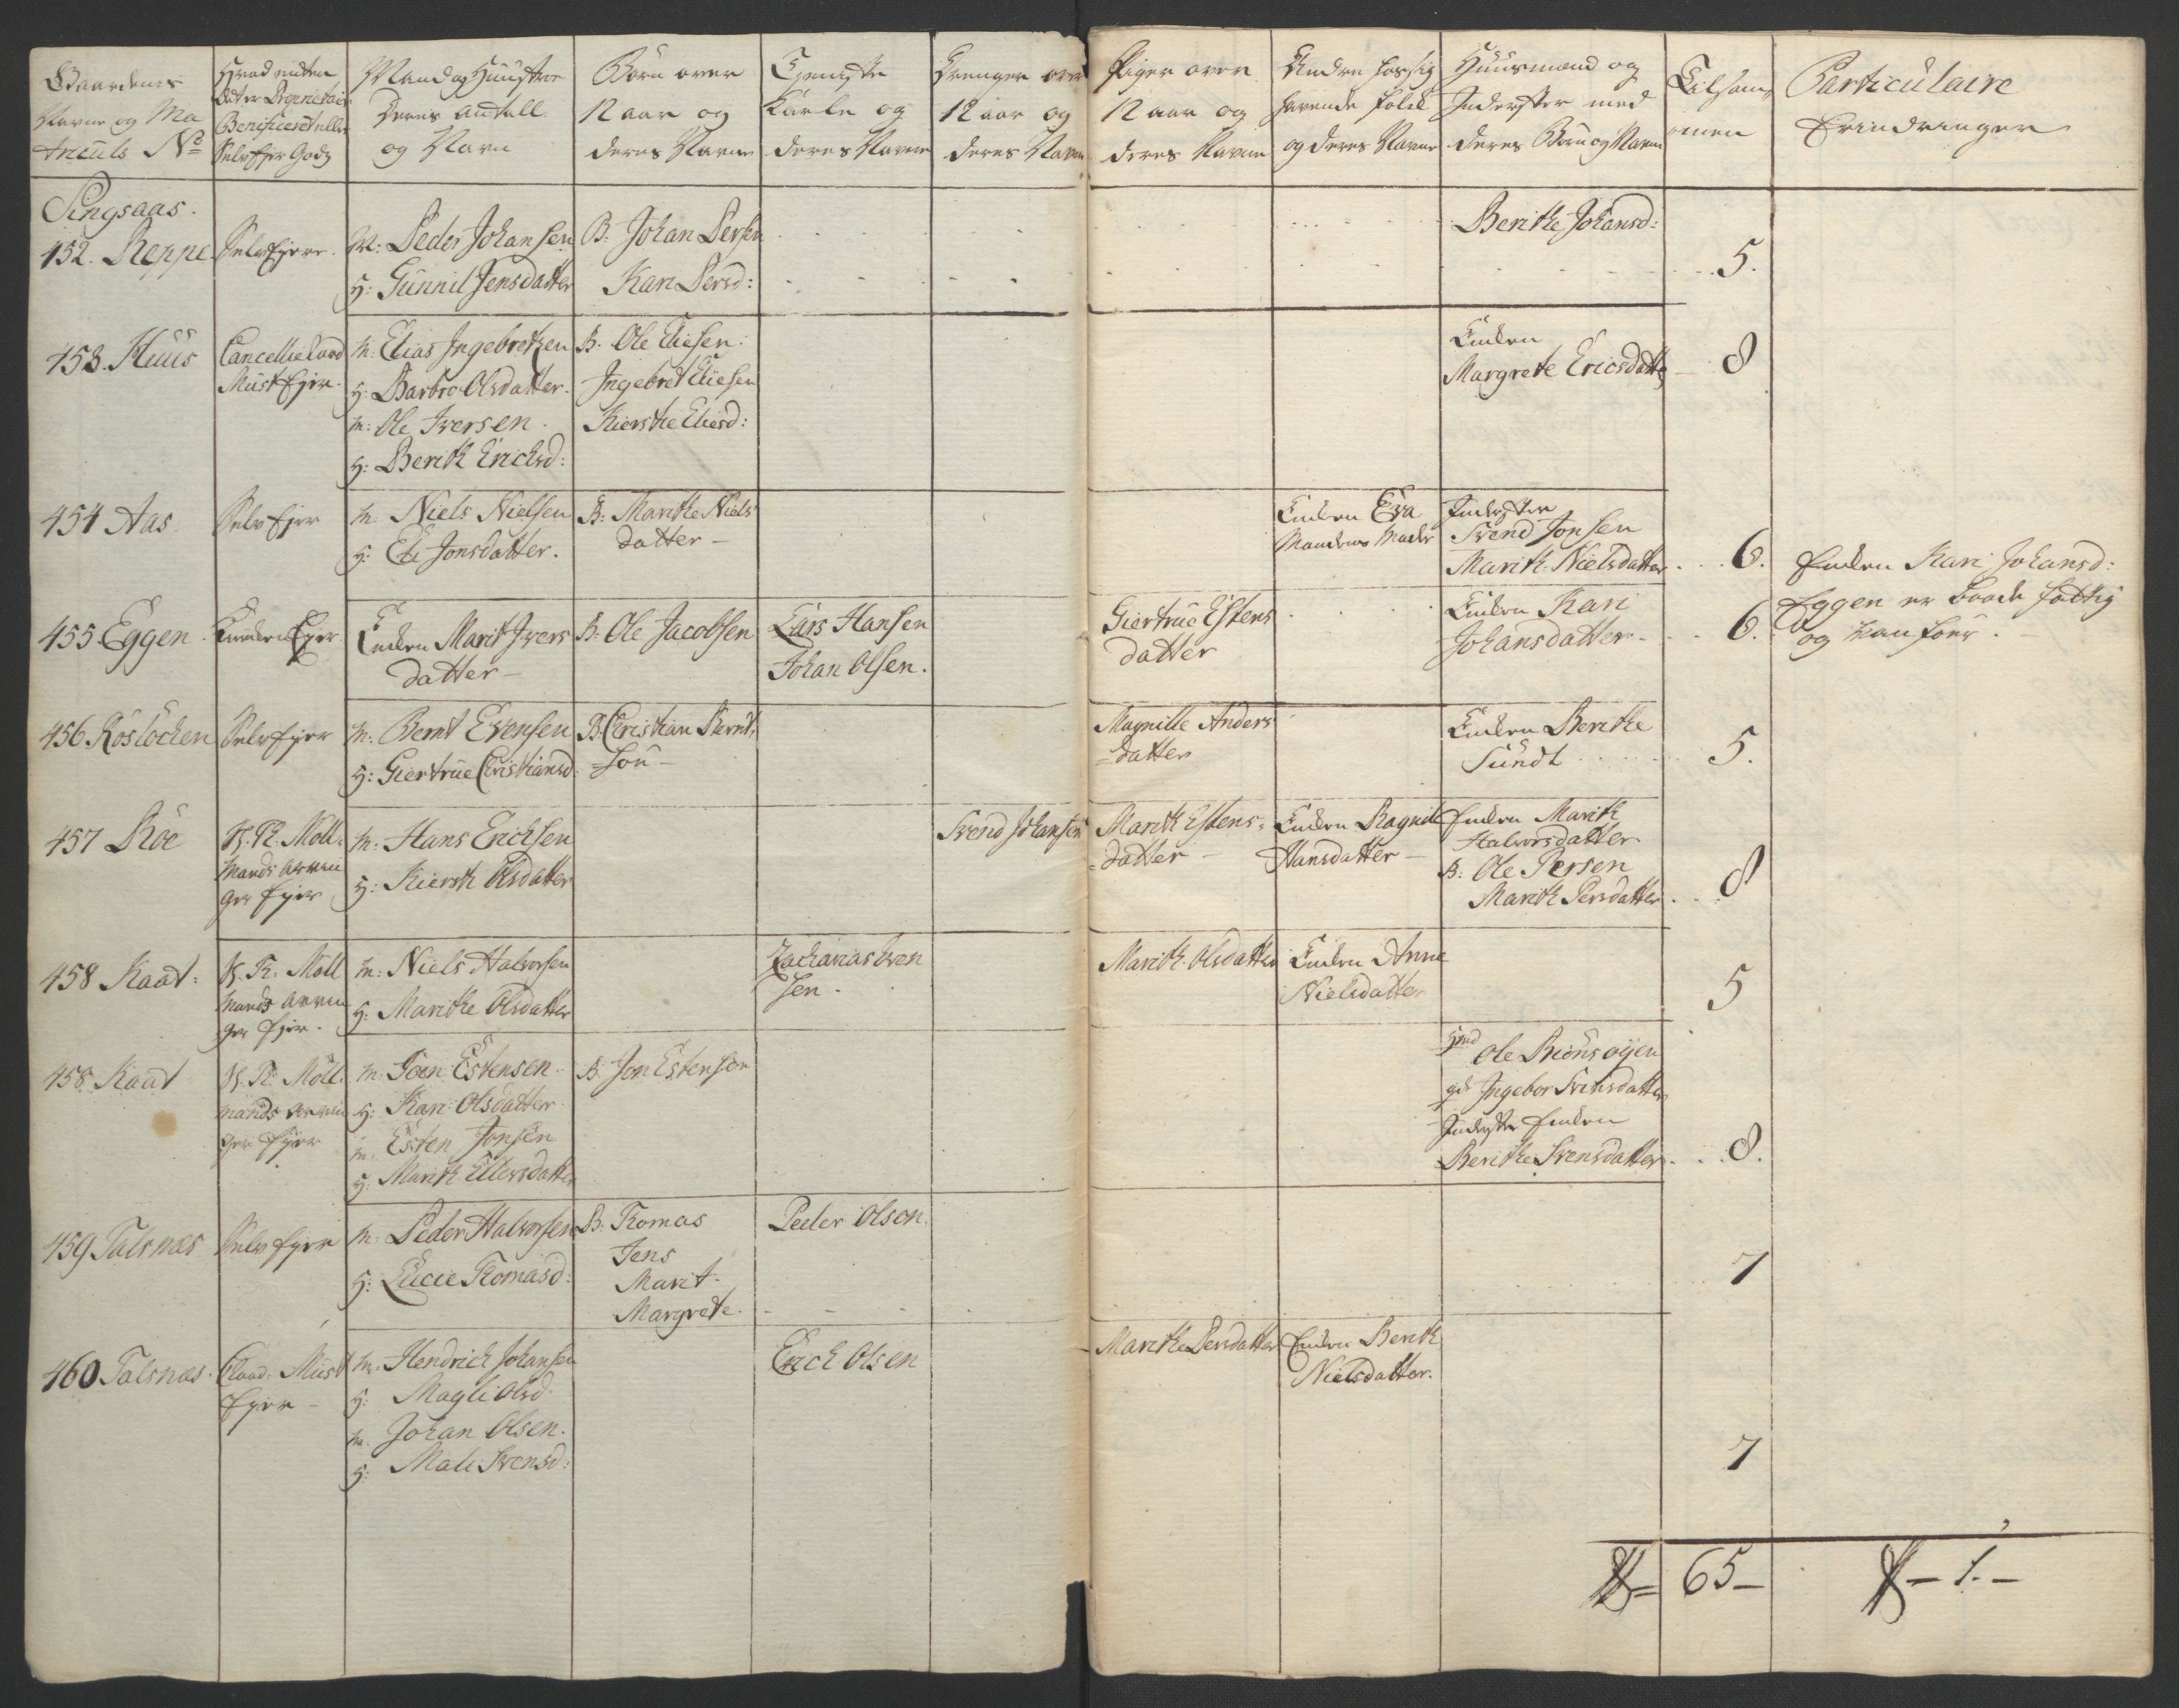 Gaardenes
Navne og Ma
triculs No
Hvad enten
Det er Proprietair
Beneficeret eller
Selv Ejer Godz
Mand og Huustroe
Deres Antall
og Navn
Børn over
12 aar og
deres Navne
Tieniste
Karle og
deres Navne
Drenger over
12 aar og
deres Navne
Piger over
12 aar og
deres Navne
Andre hos sig
havende folck
og deres Navne
Huusmænd og
Inderster med
deres Børn og Navne
Tilsam
men
Particulaire
Erindringer
Singsaas.
452. Reppe
Selv Ejere.
M: Peder Johansen
H: Gunnil Jensdatter
B: Johan Persen
Kari Persd:
Berithe Johansd:
5.
453. Huus
Cancellieraad
Must Ejer.
M: Elias Ingebretzen
H: Barbro Olsdatter.
M: Ole Iversen.
H: Berith Erichsd:
B. Ole Eliesen.
Ingebret Eliesen
Kiersthe Eliesd:
Encken
Margrete Ericsdatter
8
454 Aas.
Selv Ejer
M. Niels Nielsen
H: Eli Jonsdatter.
B: Marithe Niels
datter –
Encken Eva
Mandens Moder
Inderster
Svend Jonsen
Marith. Nielsdatter
6.
455. Eggen.
Encken Ejer
Encken Marit Ivers
datter –
B: Ole Jacobsen
Lars Hansen
Johan Olsen.
Giertrue Estens
datter
Encken Kari
Johansdatter
6.
Encken Kari Johansd:
Eggen er baade fattig
og
456 Röslöcken
Selv Ejer
M. Bernt Evensen
H: Giertrue Christiansd
B. Christian Bernt
=sön –
Magnille Anders
=datter
Encken Berithe
Sundt
5.
457 Röe
H. R. Moll
mands Arvin
ger Ejer
M: Hans Erichsen
H: Kiersti Olsdatter
Svend Johansen
Marith Estens
=datter –
Encken Ragnild
Hansdatter –
Encken Marith
Halvorsdatter
B: Ole Persen
Marith Persdatter
8
458 Kaat:
H. R. Moll
mands Arvin
ger Ejer.
M: Niels Halvorsen
H: Marithe Olsdatter
Zacharias Iven
sen.
Marith Olsdatter
Encken Anne
Nielsdatter
5
458. Kaat
H. R. Moll.
mands Arvin
ger Ejer
M: Joen Estensen
H: Kari Olsdatter
M. Esten Jonsen
H: Marith Ellevsdatter
B. Jon Estensøn
Hmd Ole Biönsøyen
Ingebor Svensdatter
Inderster Encken
Berithe Svensdatter
8.
459 Talsnæs
Selv Ejer
M: Peder Halvorsen
H: Lucie Thomasd:
B: Thomas
Jens
Marit.
Margrete.
Peder Olsen.
7
460 Talsnæs.
Cload. Must
Ejer –
M: Hendrich Johansen
H: Magli Olsd.
M. Johan Olsen.
H: Mali Svensd:
Erich Olsen
Marithe Persdatter
Encken Berith
Nielsdatter.
7
65 –
– 1. –